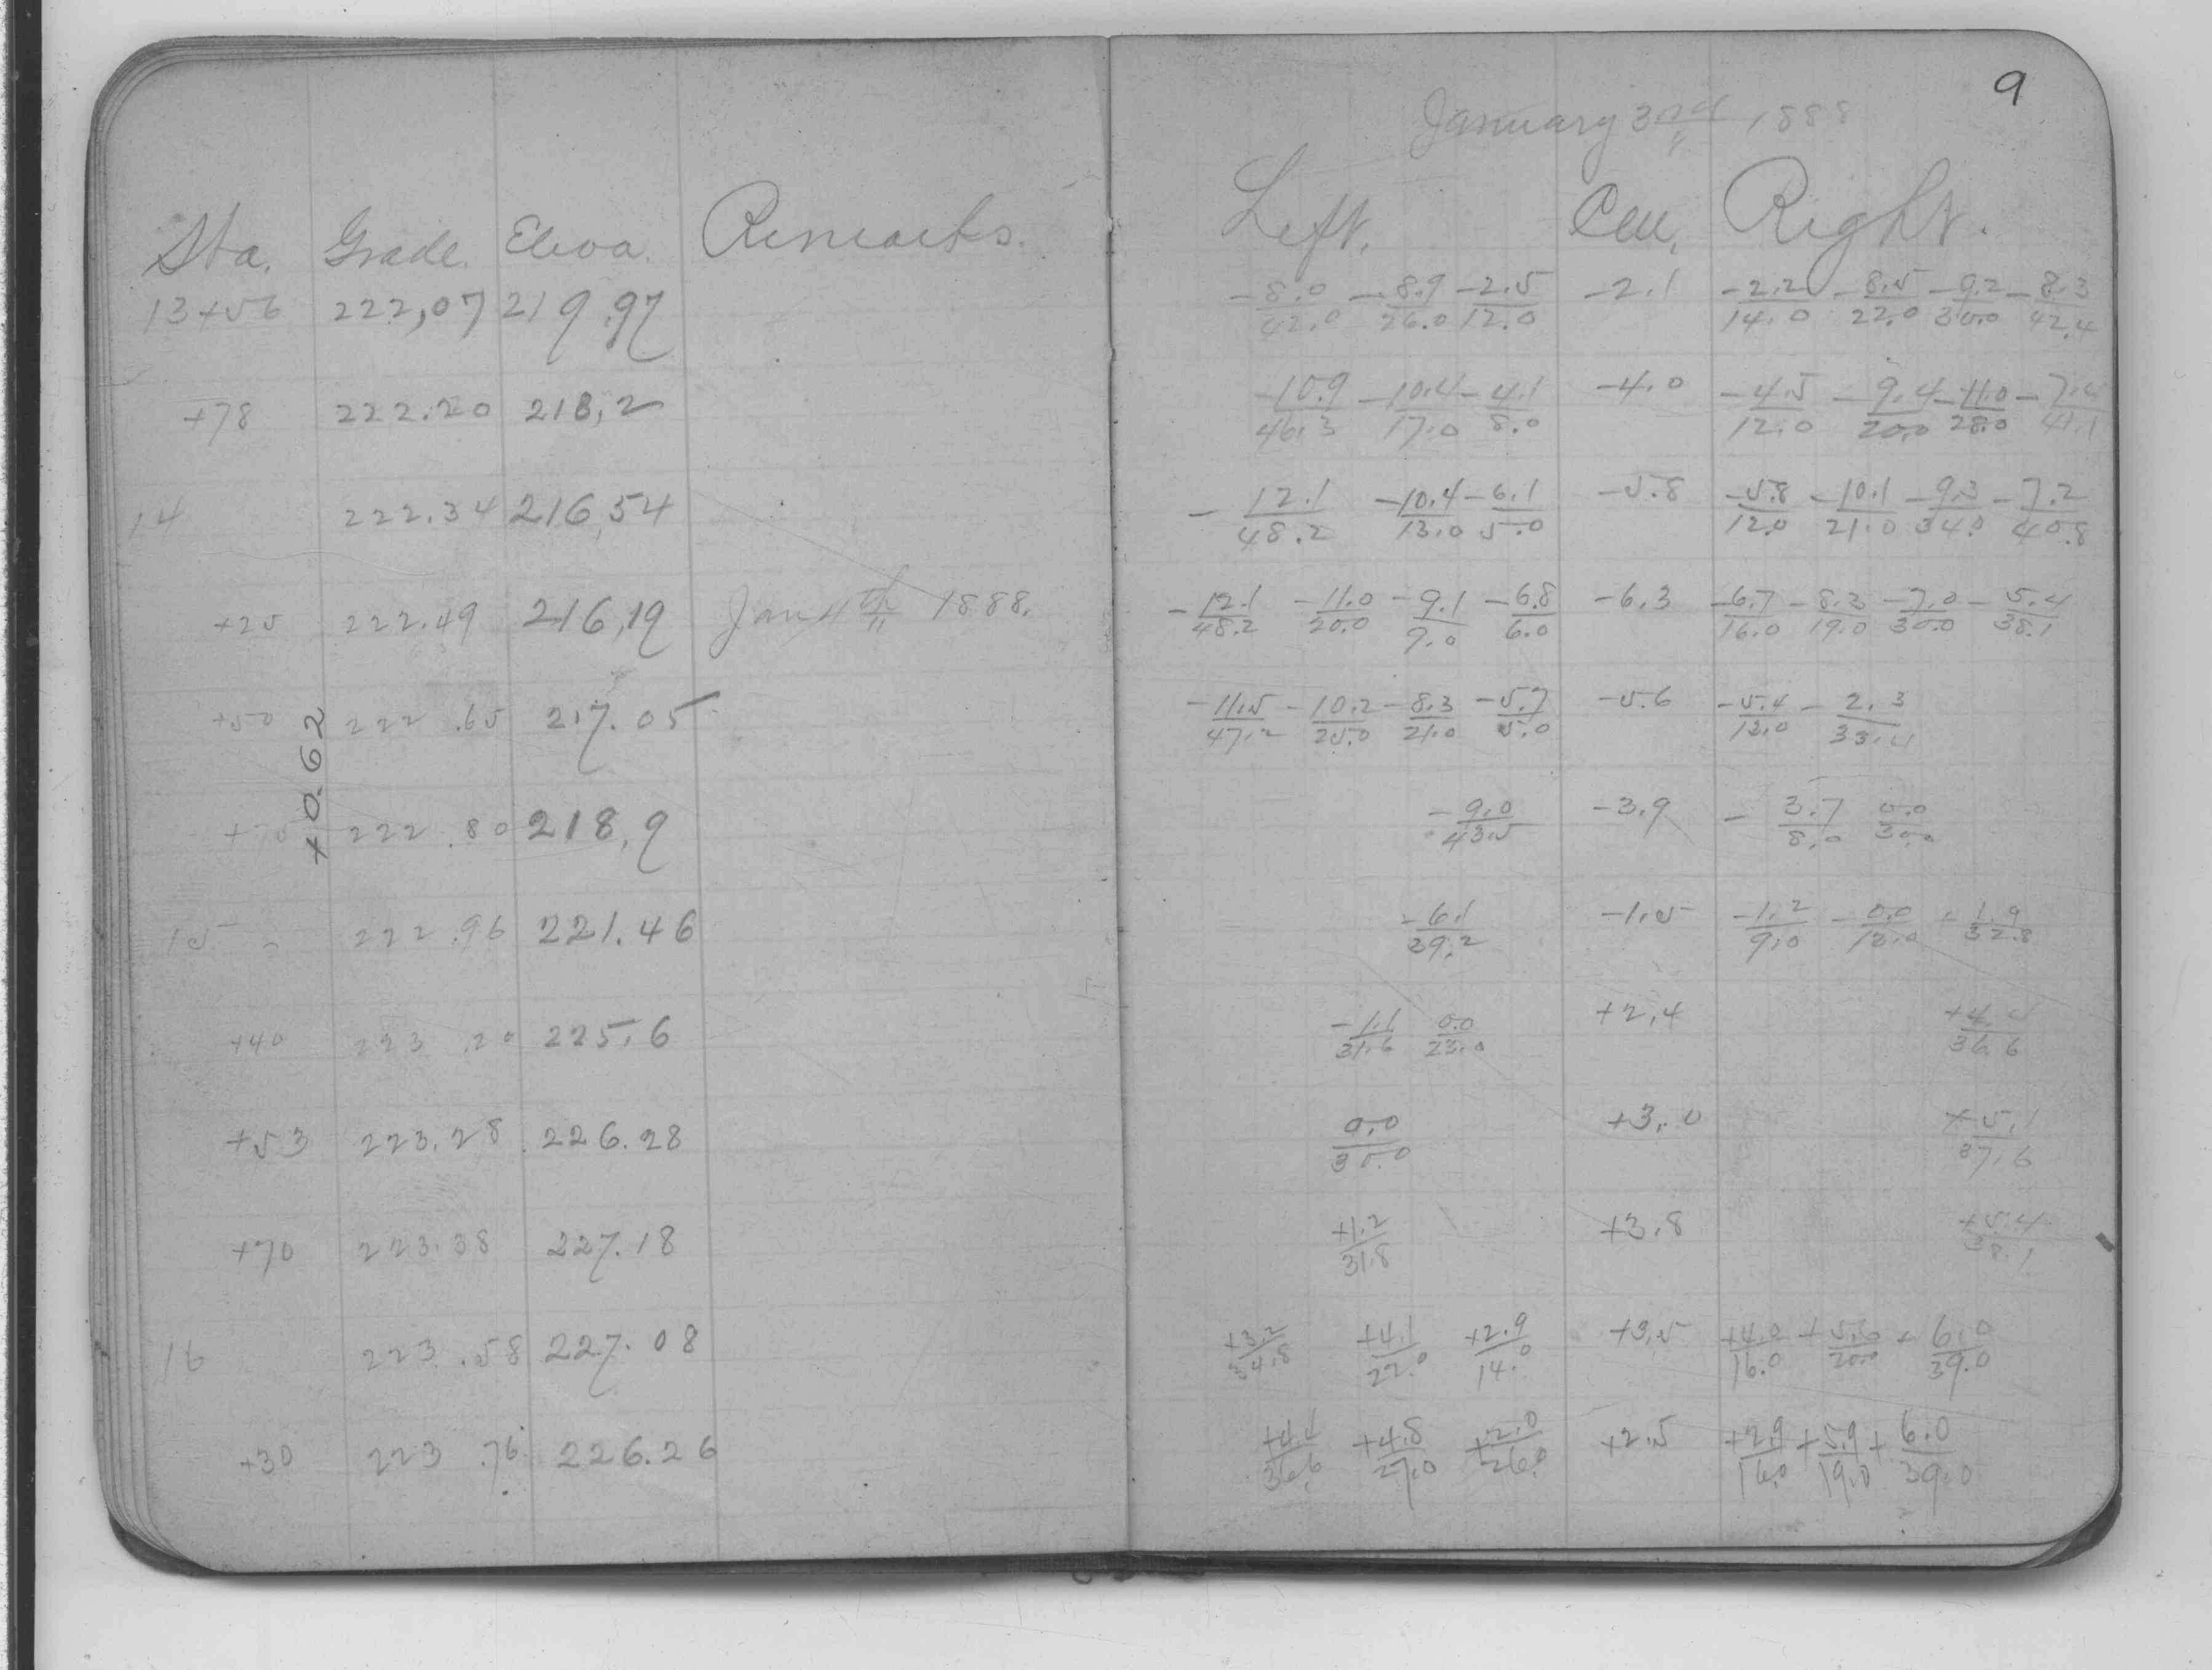 9
January 3rd 1888
Sta. Grade. Eleva. Remarks. Left. Cen. Right.
13+56 222,07 219.97 -8.0/42.0 -8.9/26.0 -2.5/12.0 -2.1 -2.2/14.0 -8.5/22.0 -9.2/35.0 -8.3/42.4
+78 222.20 218,2 -10.9/46.3 -10.4/17.0 -4.1/8.0 -4.0 -4.5/12.0 -9.4/20.0 -11.0/28.0 -7.4/41.1
14 222.34 216,54 -12.1/48.2 -10.4/13.0 -6.1/5.0 -5.8 -5.8/12.0 -10.1/21.0 -9.3/34.0 -7.2/40.8
+25 222.49 216,19 Jan 4th 1888. -12.1/48.2 -11.0/20.0 -9.1/9.0 -6.8/6.0 -6.3 -6.7/16.0 -8.3/19.0 -7.0/30.0 -5.4/38.1
+50 222.65 217.05 -11.5/47.2 -10.2/25.0 -8.3/21.0 -5.7/5.0 -5.6 -5.4/13.0 -2.3/33.4
+0.62
222.80 218,9 -9.0/43.5 -3.9 -3.7/8.0 0.0/30.0
15 222.96 221.46 -6.1/39.2 -1.5 -1.2/9.0 -0.0/13.0 +1.9/32.8
+40 223.20 225.6 -1.1/31.6 0.0/23.0 +2,4 36.6
+53 223.28 226.28 0.0/30.0 +3.0 +5.1/37.6
+70 223.38 227.18 +1.2/31.8 +3.8 +5.4/38.1
16 223.58 227.08 +3.2/34.8 +4.1/22.0 +2.9/14.0 +3.5 +4.0/16.0 +5.6/20.0 +6.0/39.0
+30 223.76 226.26 +4.4/36.6 +4.8/27.0 +2.0/26.0 +2.5 +2.9/16.0 +5.9/19.0 +6.0/39.0